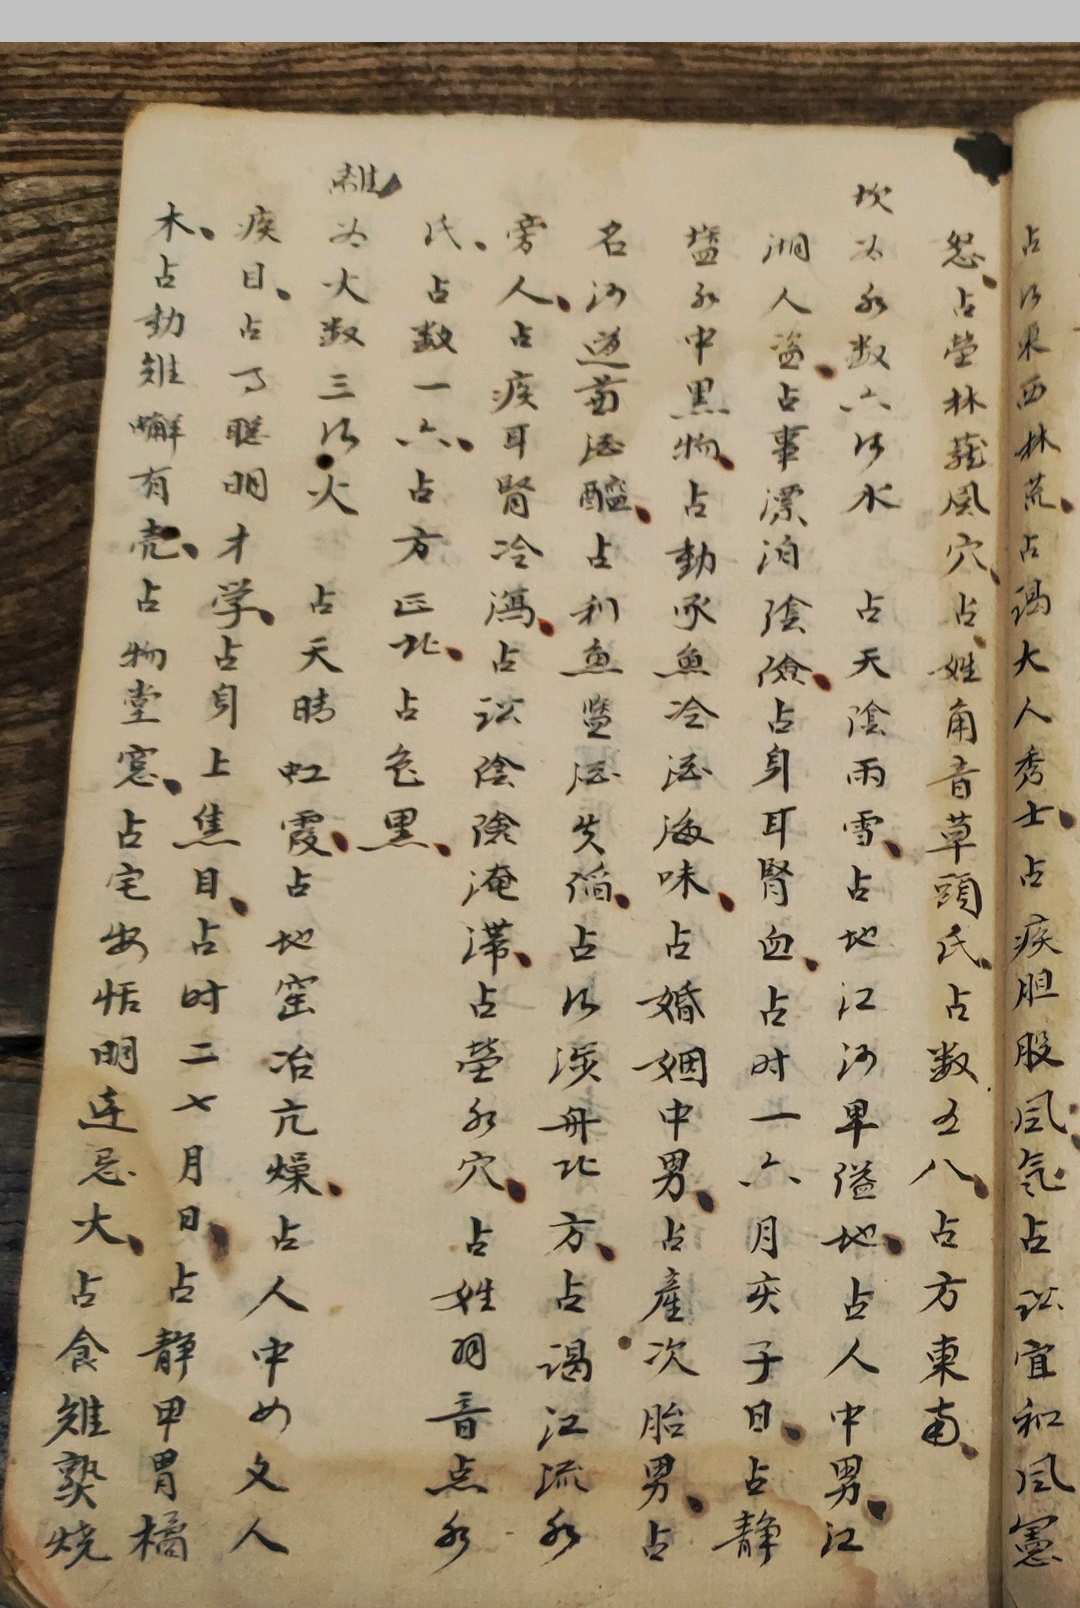 占行東西林荒占謁大人秀士占疾胆股風氣占訟宜和風憲
怒占塋林蘢風穴占姓角音草頭氏占数五八占方東南
坎为水数六行水 占天陰雨雪占地江河旱隘地占人中男江
湖人盗占事漂泊陰險占身耳腎血占时一六月亥子日占靜
塩水中黑物占動豕魚冷酒海味占婚姻中男占產次胎男占
名河邊菌酒醢占利魚盬酒失偹占行涉舟北方占謁江流水
旁人占疾耳腎冷瀉占訟陰險淹滯占塋水穴占姓羽音点水
氏占数一六占方正北占色黑
離为火数三行火 占天晴虹霞占地窑冶亢燥占人中女文人
疾目占事聪明才学占身上焦目占时二七月日占靜甲胃橘
木占動雉蠏有壳占物堂窓占宅安恬明連忌大占食雉䡒烧